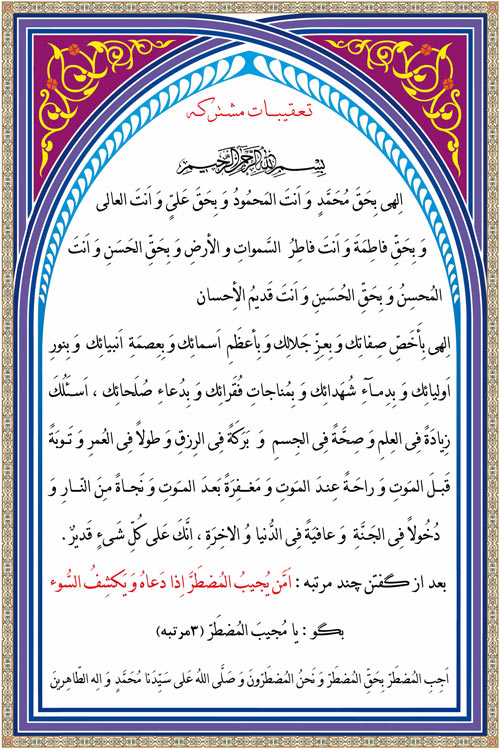 تعقیبات مشترکه
بِسْمِ اللهِ الرَّحْمنِ الرَّحیمِ
اِلهی بِحَقِّ مُحَمَّدٍ وَ اَنتَ المَحمُودُ وَ بِحَقِّ عَلیٍّ وَ اَنتَ العالی
وَ بِحَقِّ فاطِمَةَ وَ اَنتَ فاطِرُ السَّمواتِ و الأرضِ وَ بِحَقِّ الحَسَنِ وَ اَنتَ
المُحسِنُ وَ بِحَقِّ الحُسَینِ وَ اَنتَ قَدیمُ الأِحسان
اِلهی بِأَخَصِّ صِفاتِكَ وَ بِعِزِّ جَلالِكَ وَ بِأعظَمِ اَسمائِكَ وَ بِعِصمَةِ اَنبیائِك وَ بنورِ
اَولیائِك وَ بِدِمآءِ شُهَدائِكَ وَ بِمُناجاتِ فُقَرائِكَ وَ بِدُعاءِ صُلَحائِكَ ، اَسئَلُكَ
زِیادَةً فِی العِلمِ وَ صِحَّةً فِی الجِسمِ وَ بَرَکَةً فِی الرِزقِ وَ طولاً فِی العُمرِ وَ تَوبَةً
قَبلَ المَوتِ وَ راحَةً عِندَ المَوتِ وَ مَغفِرَةً بَعدَ المَوتِ وَ نَجاةً مِنَ النّارِ وَ
دُخُولاً فِی الجَنَّةِ وَ عافیَةً فِی الدُّنیا وَ الاخِرَةِ ، اِنَّكَ عَلی کُلِّ شَیءٍ قَدیرٌ .
بعد از گفتن چند مرتبه : اَمَّن یُجیبُ المُضطَرَّ اِذا دَعاهُ وَ یَکشِفُ السُّوء
بگو : یا مُجیبَ المُضطَرّ (۳مرتبه)
اَجِبِ المُضطَرّ بِحَقِّ المُضطَرّ وَ نَحنُ المُضطَرّونَ وَ صَلَّی اللهُ عَلی سَیِّدِنا مُحَمَّدٍ وَ الِه الطّاهِرینَ